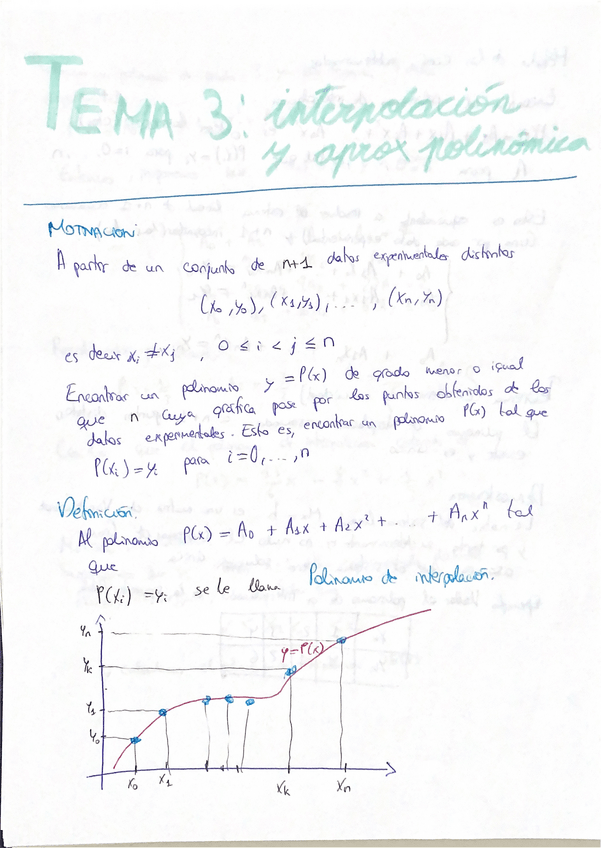 TEMA 3: interpolación
y aprox polinómica
MOTIVACION:
A partir de un conjunto de n+1 datos experimentales distintos
(x₀, y₀), (x₁, y₁), ..., (xₙ, yₙ)
es decir xᵢ ≠ xⱼ , 0 ≤ i < j ≤ n
Encontrar un polinomio y = P(x) de grado menor o igual
que n cuya gráfica pase por los puntos obtenidos de los
datos experimentales. Esto es, encontrar un polinomio P(x) tal que
P(xᵢ) = yᵢ para i=0,...,n
Definición.
Al polinomio P(x) = A₀ + A₁x + A₂x² + ... + Aₙxⁿ tal
que
P(xᵢ) = yᵢ se le llama Polinomio de interpolación.
yₙ
yₖ
y₁
y₀
y=P(x)
x₀ x₁ xₖ xₙ